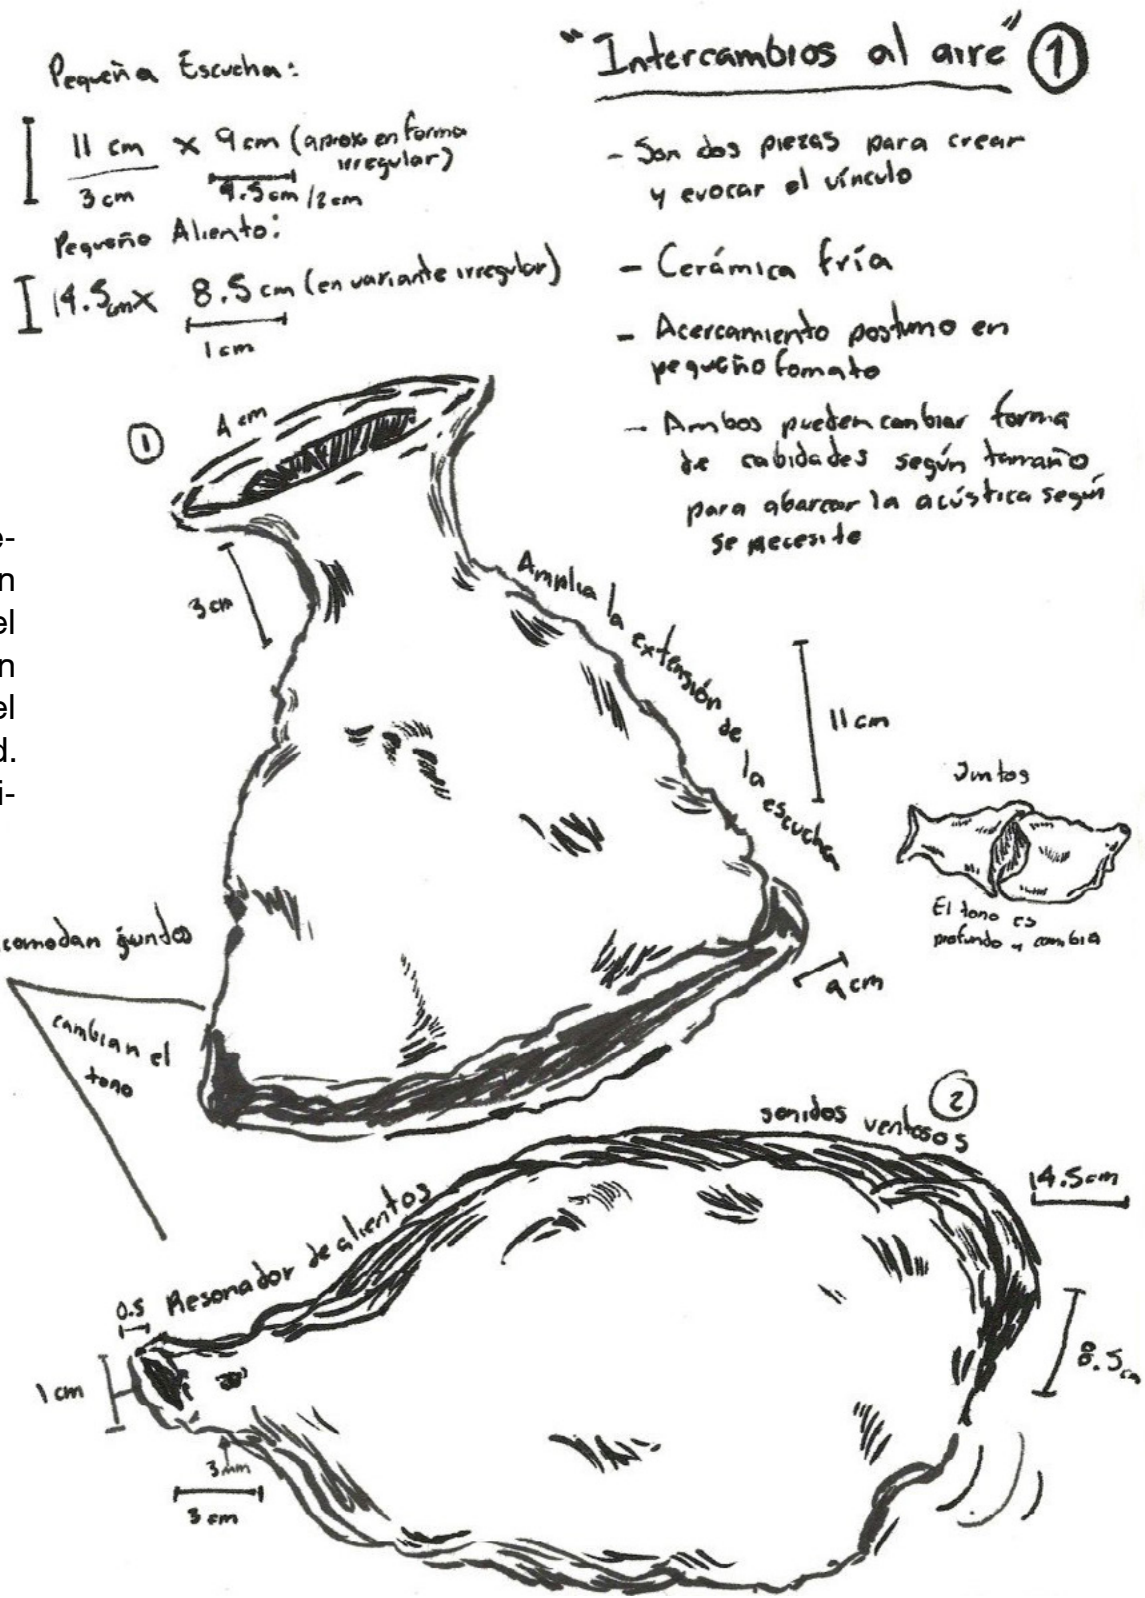 "Intercambios al aire" 1
Pequeña Escucha:
11 cm x 9 cm (aprox en forma
irregular)
3 cm 4.5 cm /2 cm
Pequeño Aliento:
14.5 cm x 8.5 cm (en variante irregular)
1 cm
- Son dos piezas para crear
y evocar el vínculo
- Cerámica fría
- Acercamiento postumo en
pequeño fomato
- Ambos pueden cambiar forma
de cabidades según tamaño
para abarcar la acústica según
se necesite
e-
n
el
n
el
d.
i-
1
4 cm
3 cm
Amplia la extensión de la escucha
11 cm
Juntos
El tono es
profundo y cambia
comodan juntos
cambian el
tono
9 cm
2
sonidos ventosos
14.5 cm
Resonador de alientos
0.5
1 cm
8.5 cm
3 mm
3 cm